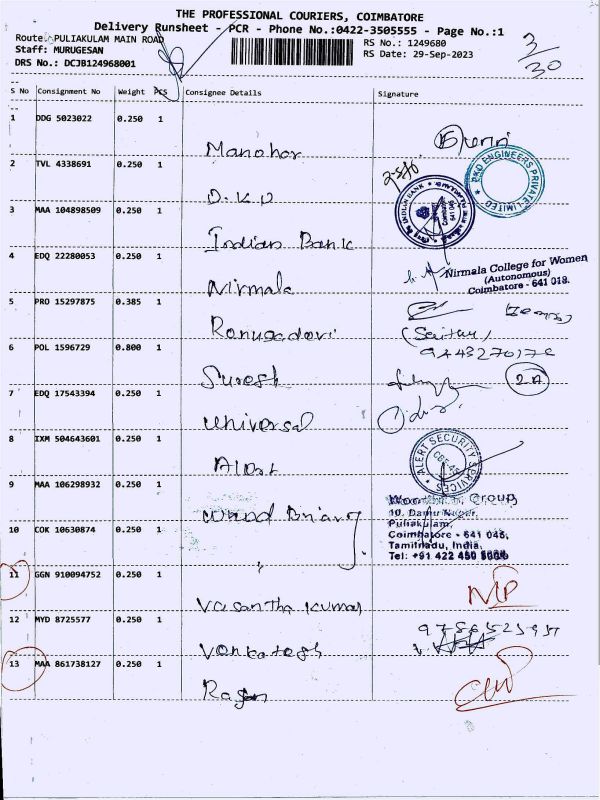 THE PROFESSIONAL COURIERS, COIMBATORE
Delivery Runsheet - PCR - Phone No.:0422-3505555 - Page No.:1
Route : PULIAKULAM MAIN ROAD
Staff: MURUGESAN
DRS No.: DCJB124968001
RS No.: 1249680
RS Date: 29-Sep-2023
3/30
S No Consignment No Weight PCS Consignee Details Signature
1 DDG 5023022 0.250 1
Manohar
2 TVL 4338691 0.250 1
D.K.D
PKD ENGINEERS PRIVATE LIMITED
3 MAA 104898509 0.250 1
Indian Bank
INDIAN BANK
4 EDQ 22280053 0.250 1
Nirmala
Nirmala College for Women
(Autonomous)
Coimbatore - 641 018.
5 PRO 15297875 0.385 1
Renugadevi
6 POL 1596729 0.800 1
Suresh
7 EDQ 17543394 0.250 1
Universal
8 IXM 504643601 0.250 1
Alert
ALERT SECURITY SERVICES
CBE-45
9 MAA 106298932 0.250 1
Group
10, Damu Nagar,
Puliakulam,
Coimbatore - 641 045,
Tamilnadu, India.
10 COK 10630874 0.250 1
11 GGN 910094752 0.250 1
Vasantha Kumar
12 MYD 8725577 0.250 1
Venkatesh
13 MAA 861738127 0.250 1